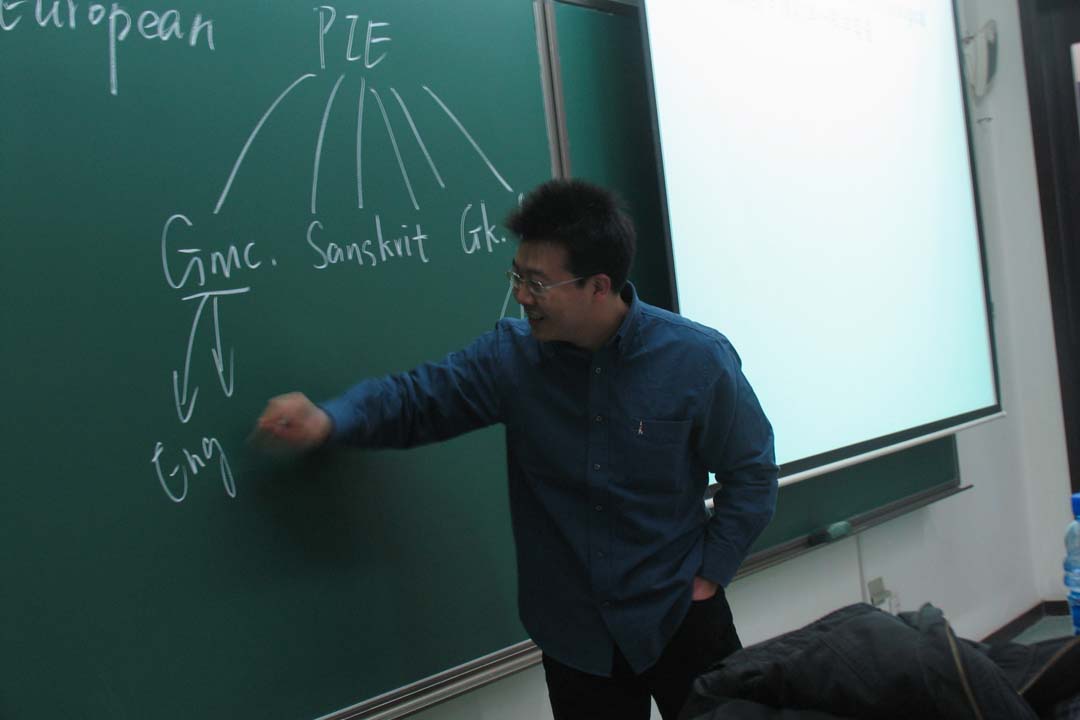 European
PIE
Gmc. Sanskrit Gk.
Eng